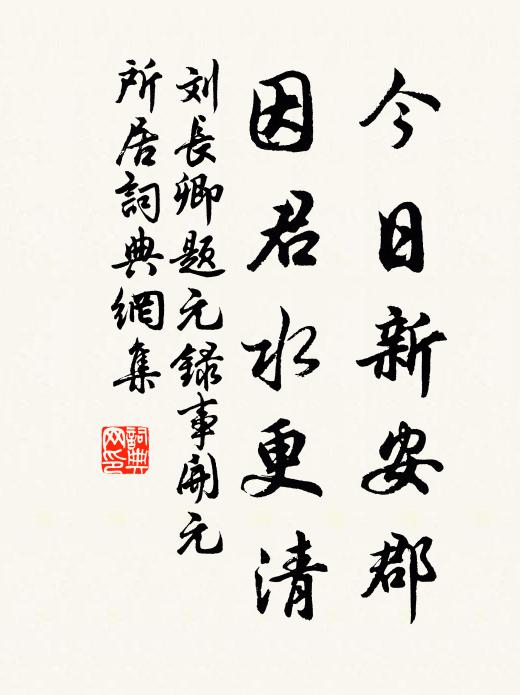 今日新安郡
因君水更清
刘長卿題元録事開元
所居詞典網集
詞典
网印